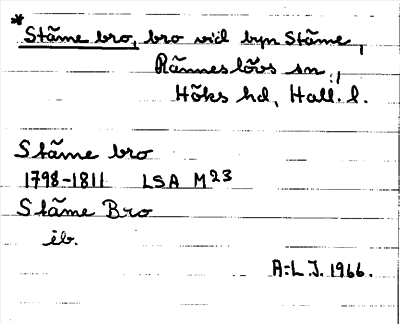 *Ståme bro, bro vid byn Ståme,
Ränneslövs sn,
Höks hd, Hall. l.
Ståme bro
1798-1811 LSA M23
Ståme Bro
ib.
A-L J. 1966.